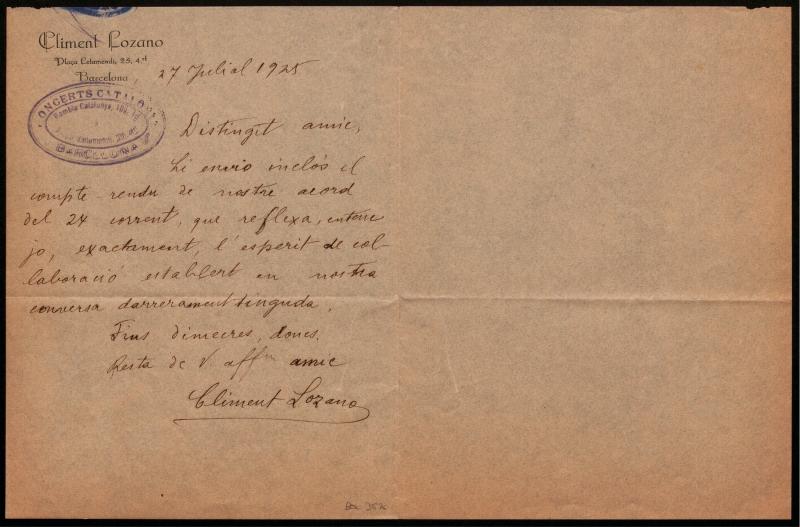 Climent Lozano
Plaça Letamendi, 25, 4.rt
Barcelona
27 Juliol 1925
CONCERTS CATALO
Rambla Catalunya,
Letamendi,
BARCELONA
Distingit amic,
Li envio inclós el
compte-rendu de nostre acord
del 24 corrent, que reflexa, entenc
jo, exactament, l'esperit de col-
laboració establert en nostra
conversa darrerament tinguda.
Fins dimecres, doncs.
Resta de V. affm amic
Climent Lozano